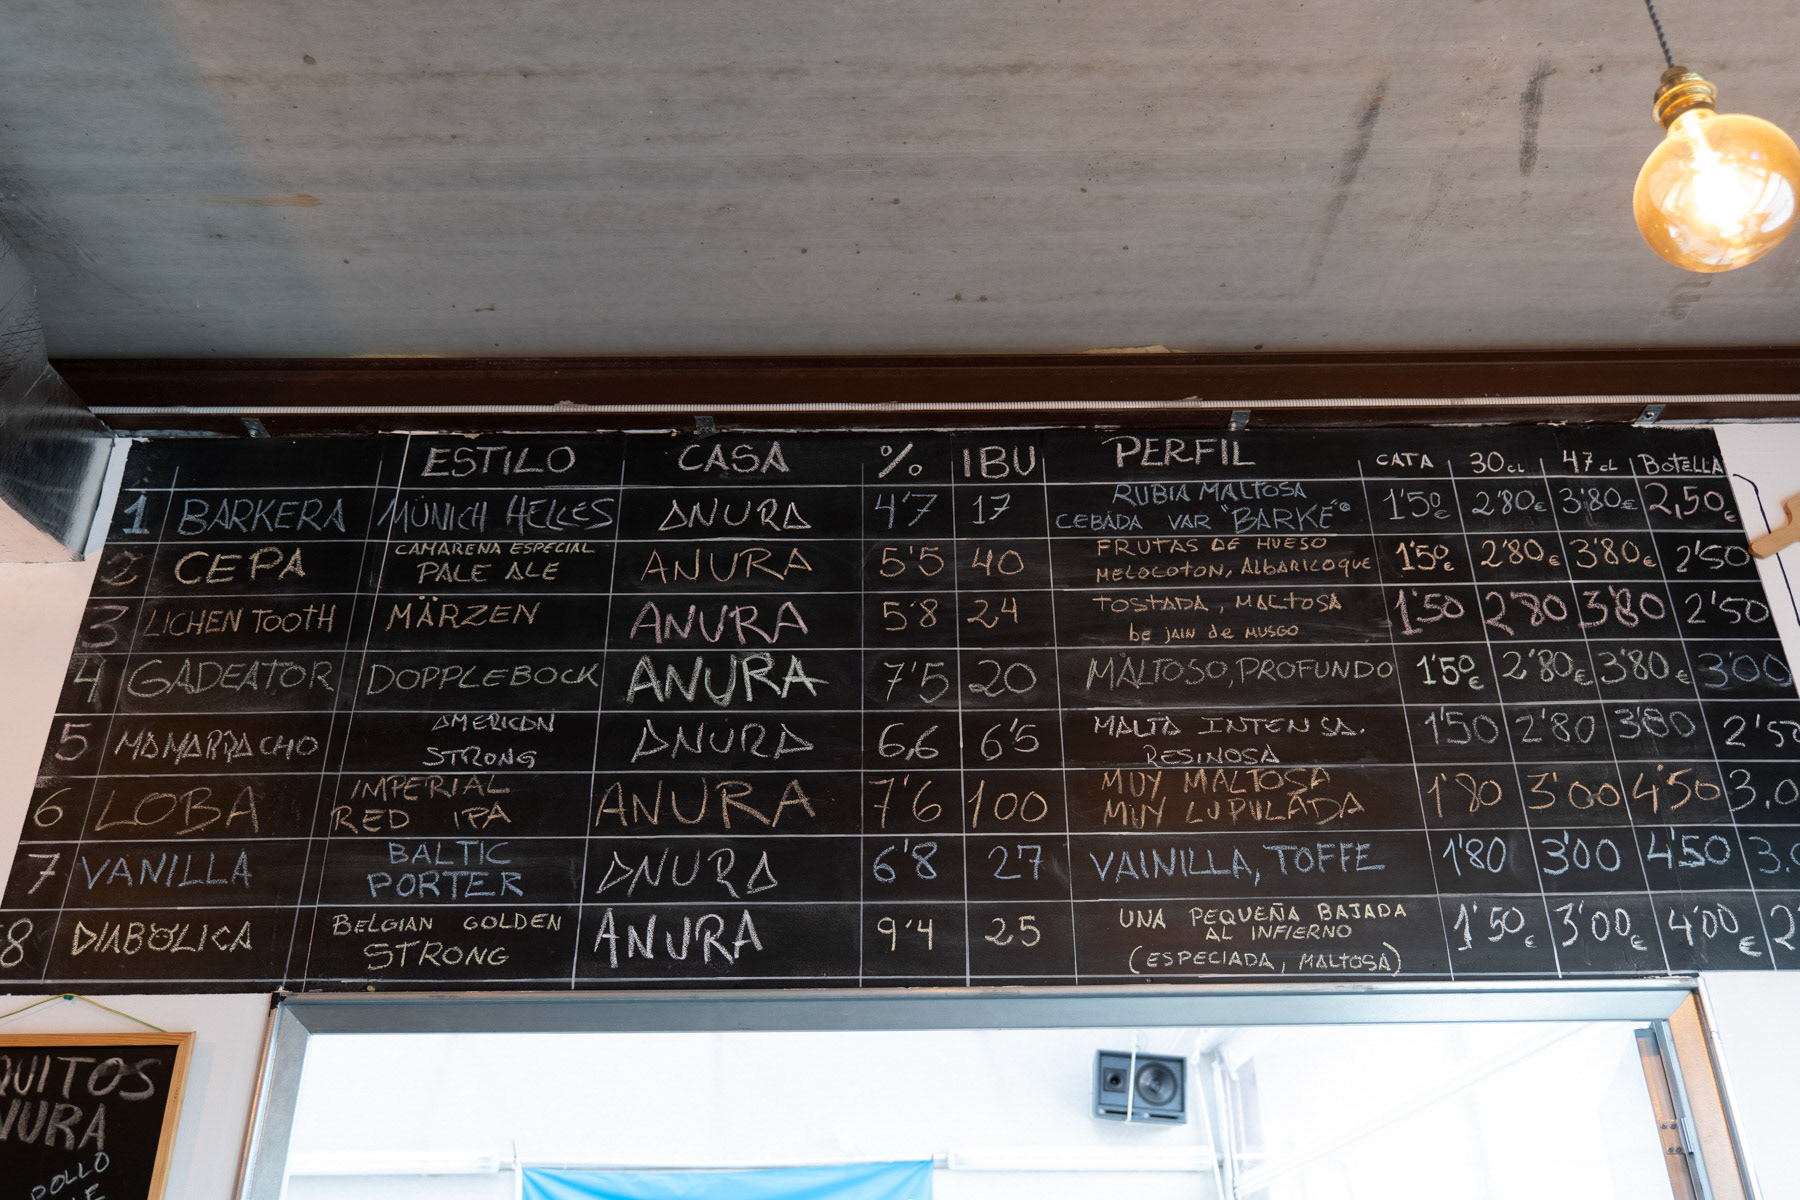 ESTILO CASA % IBU PERFIL CATA 30CL 47CL BOTELLA
1 BARKERA MÜNICH HELLES ANURA 4'7 17 RUBIA MALTOSA 1'50€ 2'80€ 3'80€ 2,50€
CEBADA VAR "BARKE"®
2 CEPA CAMARENA ESPECIAL ANURA 5'5 40 FRUTAS DE HUESO 1'50€ 2'80€ 3'80€ 2'50
PALE ALE MELOCOTON, ALBARICOQUE
3 LICHEN TOOTH MÄRZEN ANURA 5'8 24 TOSTADA, MALTOSA 1'50 2'80 3'80 2'50
be JAIN de MUSGO
4 GADEATOR DOPPLEBOCK ANURA 7'5 20 MALTOSO, PROFUNDO 1'50€ 2'80€ 3'80€ 3'00
5 MAMARRACHO AMERICAN ANURA 6,6 6'5 MALTA INTENSA. 1'50 2'80 3'80 2'50
STRONG RESINOSA
6 LOBA IMPERIAL ANURA 7'6 100 MUY MALTOSA 1'80 3'00 4'50 3.0
RED IPA MUY LUPULADA
7 VANILLA BALTIC ANURA 6'8 27 VAINILLA, TOFFE 1'80 3'00 4'50 3.
PORTER
8 DIABOLICA BELGIAN GOLDEN ANURA 9'4 25 UNA PEQUEÑA BAJADA 1'50€ 3'00€ 4'00€ 2
STRONG AL INFIERNO
(ESPECIADA, MALTOSA)
QUITOS
NURA
POLLO
LE